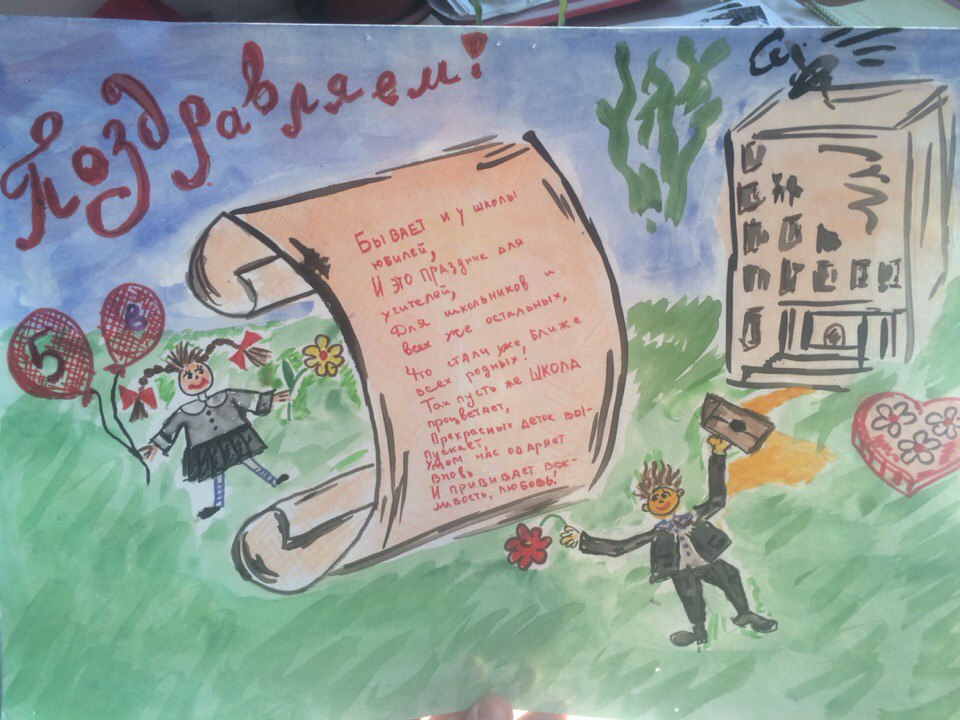 Поздравляем!
Бывает и у школы
юбилей,
И это праздник для
учителей,
Для школьников и
всех же остальных,
Что стали уже, ближе
всех родных!
Так пусть же ШКОЛА
процветает,
Прекрасных деток вы-
пускает,
Умом нас одаряет
вновь
И прививает веж-
ливость, любовь!
5 в